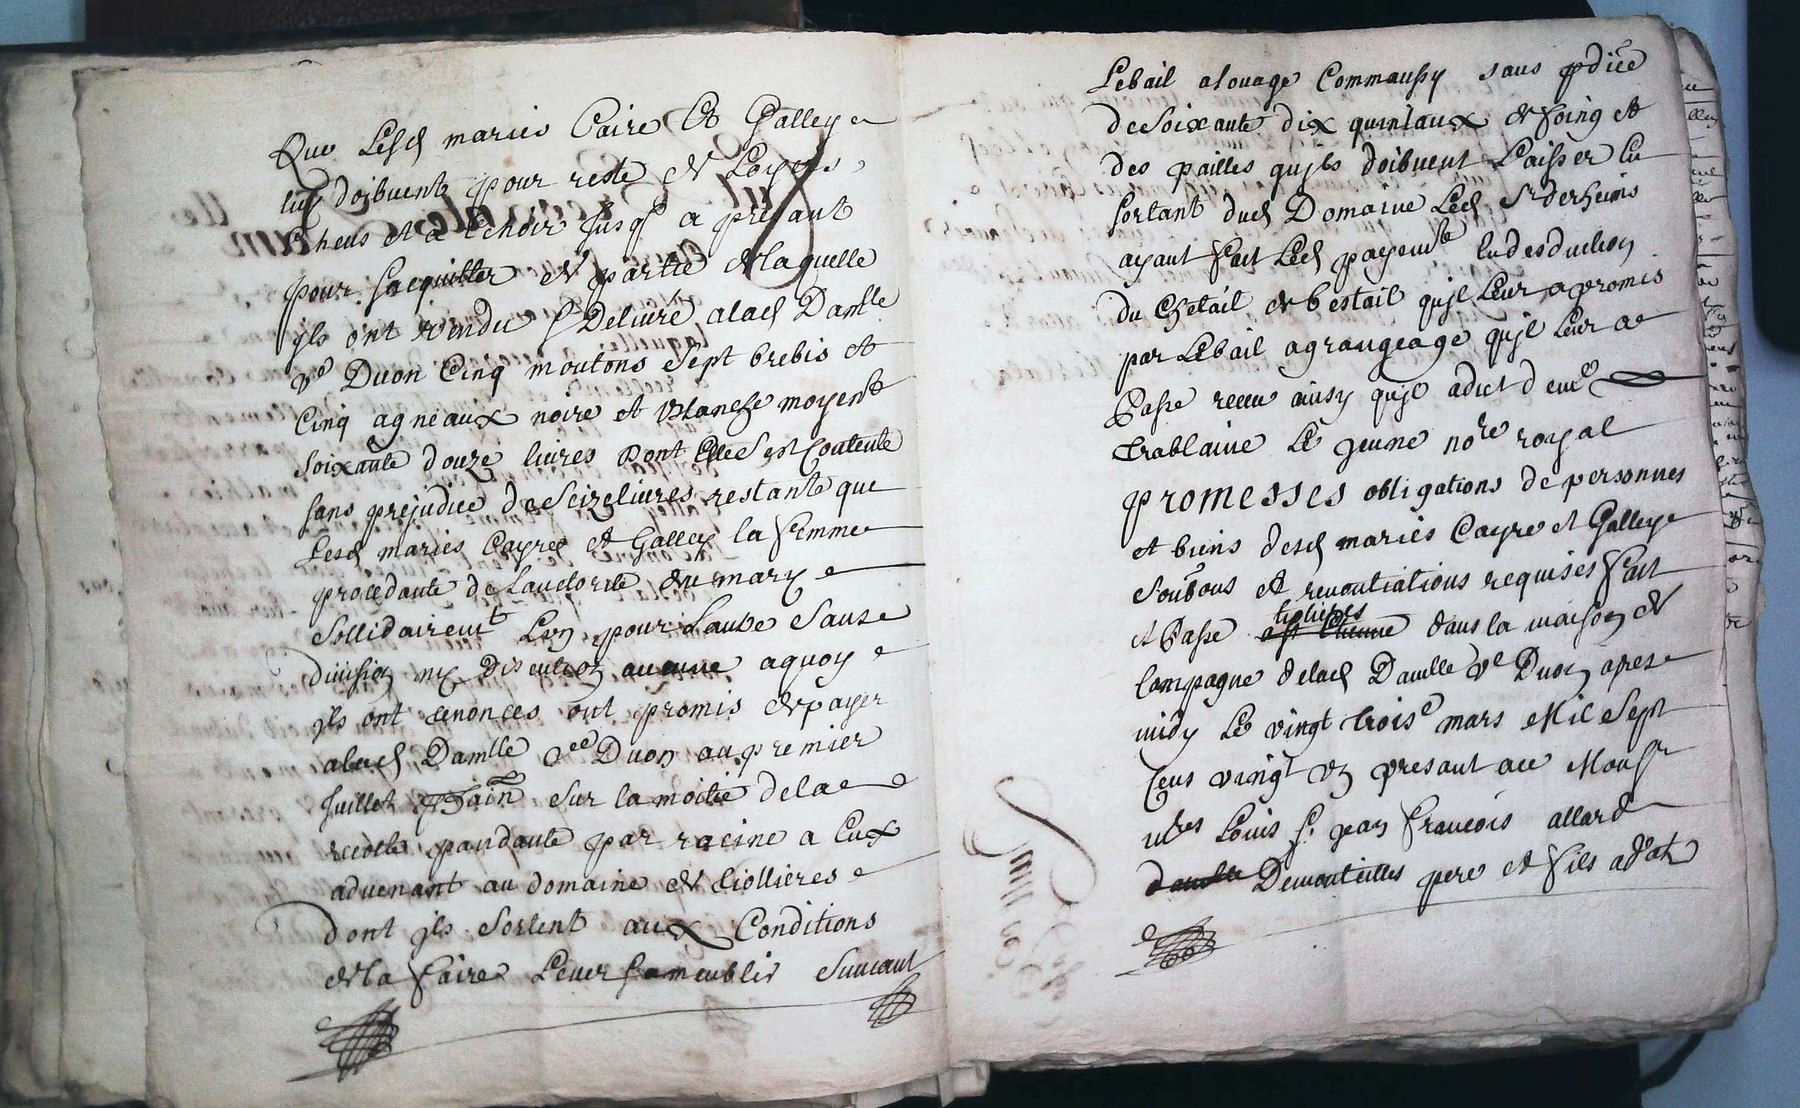 Que Lesd mariés Caire Et Galley
luy doibvent pour reste de Loyers
Echeus et a Echoir jusq a presant
pour sacquitter de partie de laquelle
ils ont vendu & Delivré a lad Damlle
ve Duon Cinq moutons sept brebis et
Cinq agneaux noire et blanche moyent
soixante douze livres dont Elle s est Contente
sans prejudice de seize livres restante que
Lesd mariés Cayre et Galley la femme
procedante de Lauctorite du mary
sollidairemt Lun pour Lautre sans
division ny discution aucune a quoy
ils ont renonces ont promis de payer
a lad Damlle vee Duon au premier
juillet sur la moitie de la
recolte pandante par racine a Eux
advenant au domaine de tiollieres
dont ils sortent aux Conditions
de la faire Lever suivant
Le bail a louage sans
de soixante dix quintaux de foing et
des pailles quils doibvent Laisser En
sortant dud Domaine Led Sr
ayant fait Led payemt
du Chetail de bestail quil Leur a promis
par Le bail a grangeage quil Leur a
Passe receu ainsy quil a dict de me
trablaine Le jeune nore royal
promesses obligations de personnes
et biens desd mariés Cayre et Galley
soubons et renontiations requises fait
tiolieres
et Passe dans la maison de
Campagne de lad Damlle ve Duon apres
midy Le vingt troise mars Mil Sept
Cens vingt un presant ace
Louis & jean francois allard
Demonteilles pere et fils